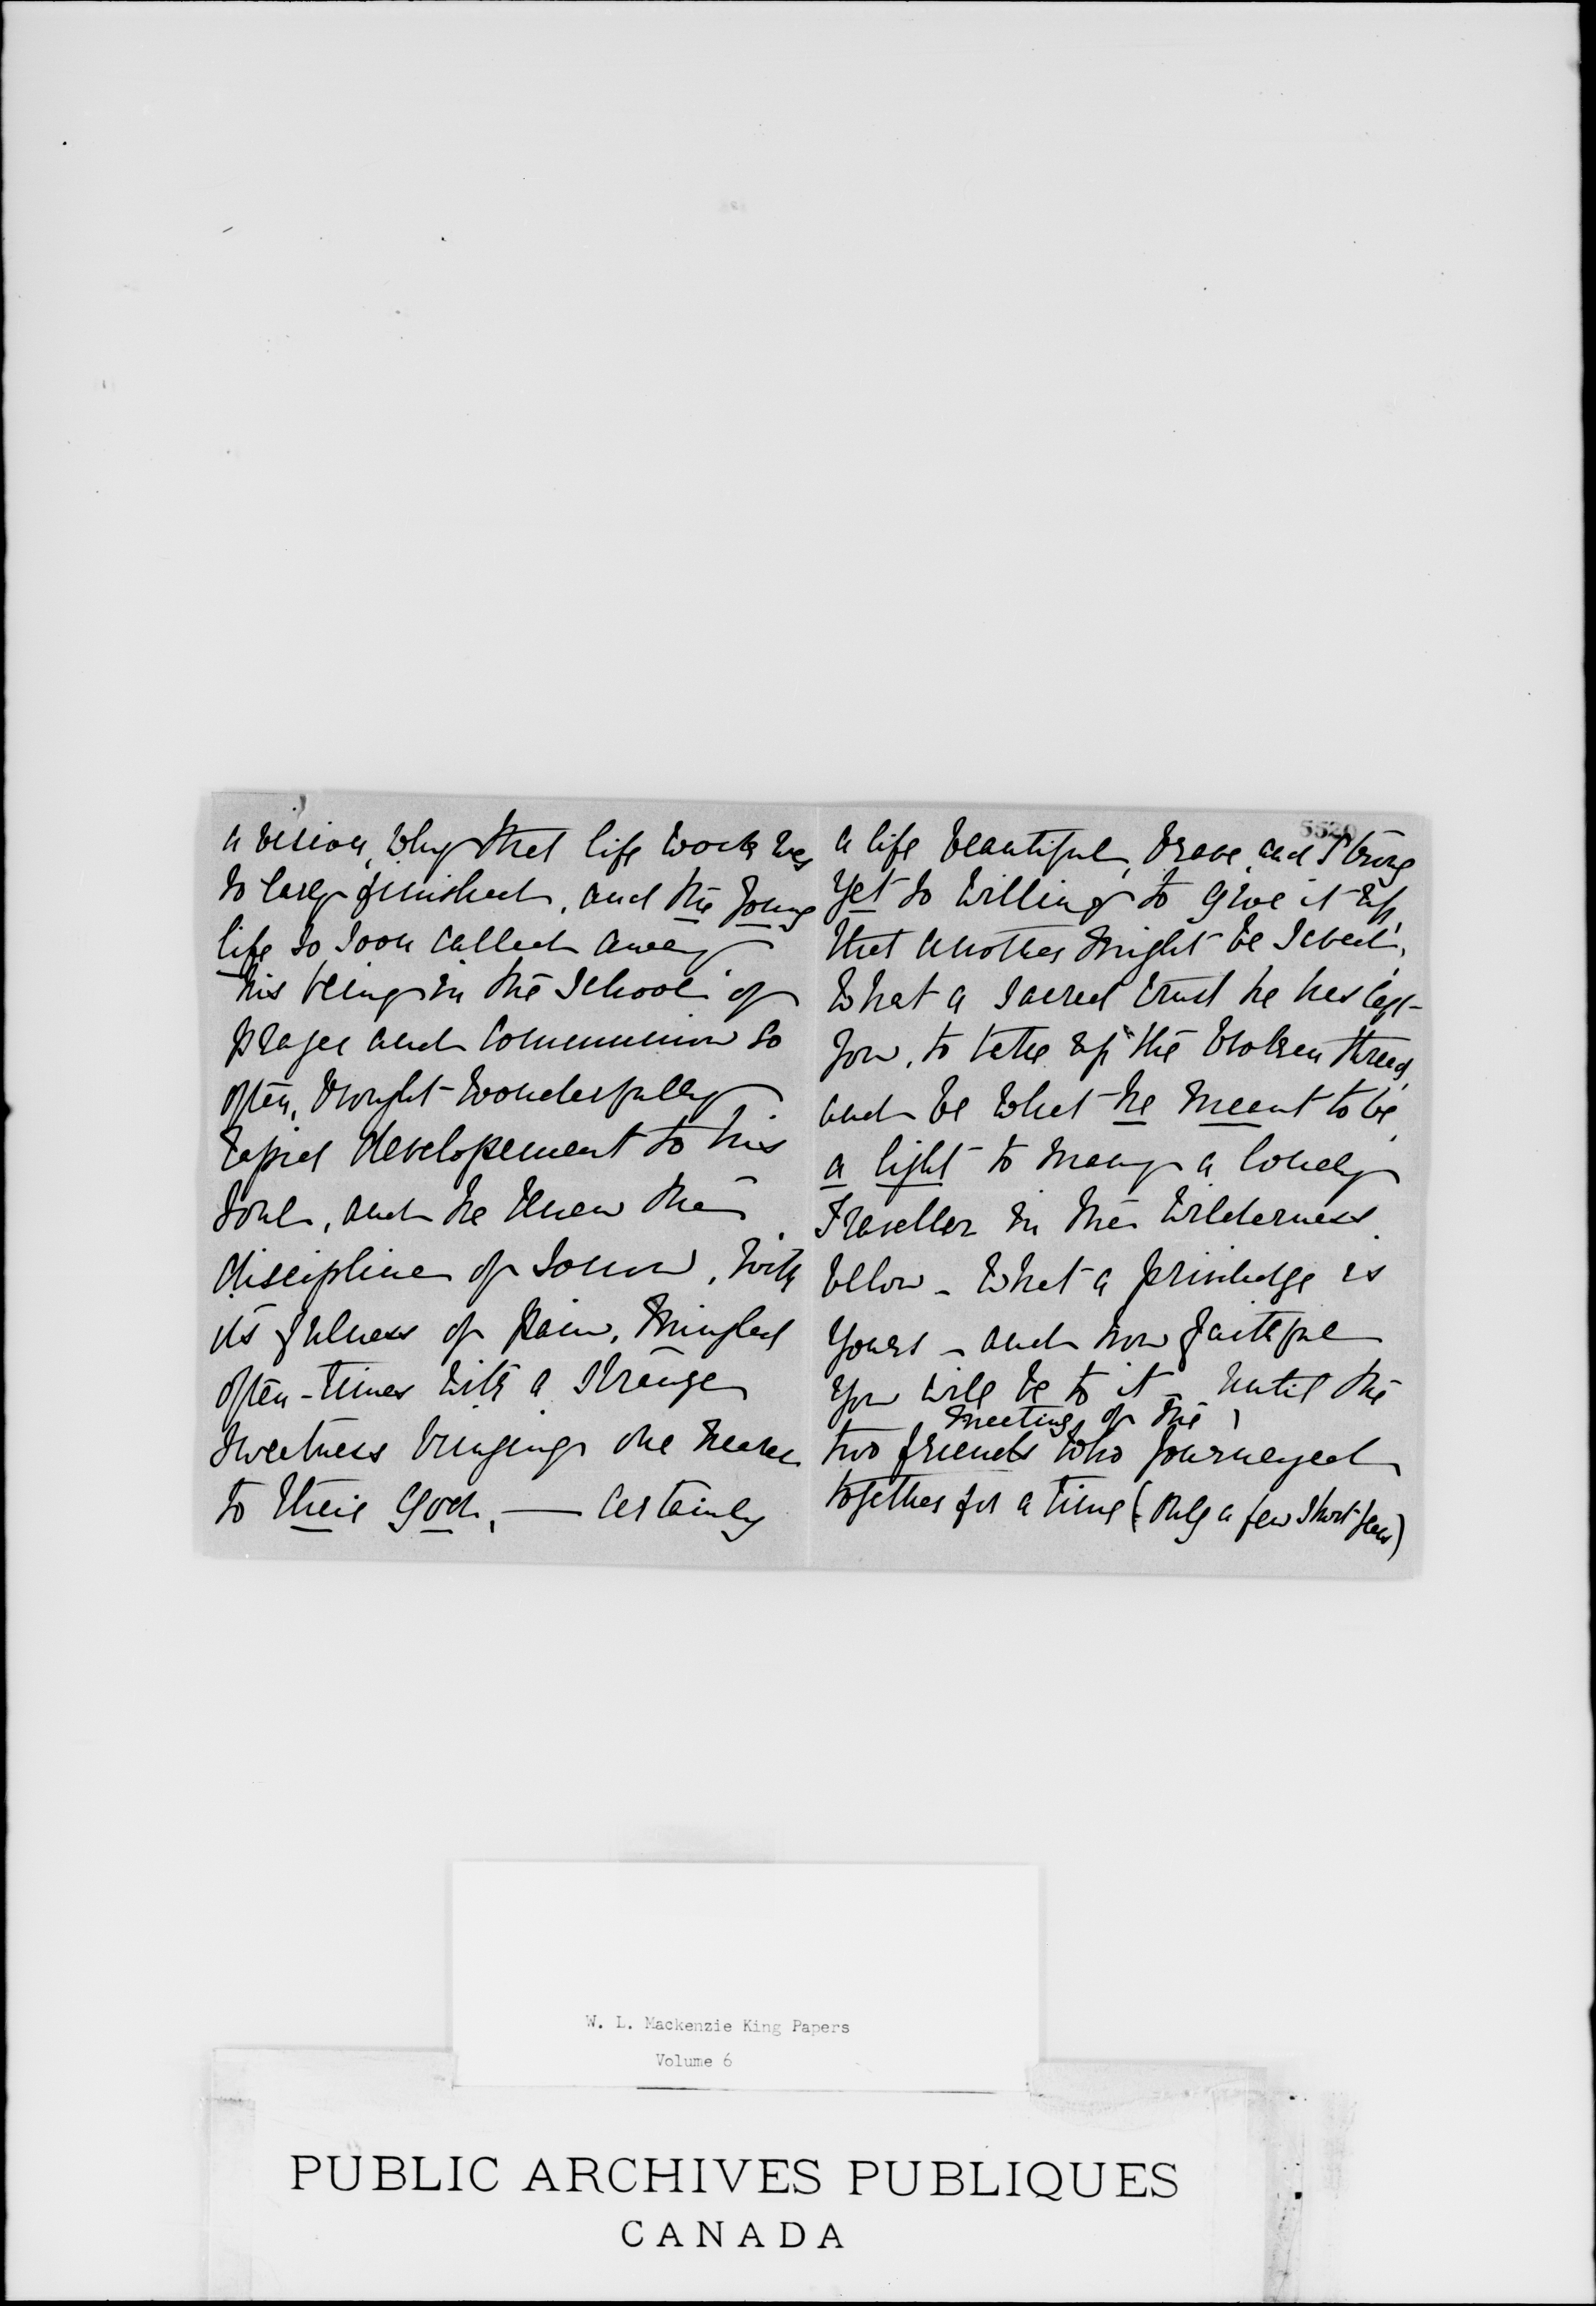 a vision, why that life work was
so early finished, and the young
life so soon called away
his being in the School of
prayer and communion so
often, brought wonderfully
rapid developement to his
soul, and he knew the
discipline of sorrow, with
its fulness of pain, mingled
often-times with a strange
sweetness bringing one nearer
to their God, — certainly
5520
a life beautiful, brave and strong
yet so willing to give it up,
that another might be saved,
What a sacred trust he has left
you, to take up "the broken thread,
and be what he meant to be,
a light to many a lonely
Traveller in the Wilderness
below - What a privilege is
yours - and how faithful
you will be to it - until the
meeting of the
two friends who journeyed
together for a time (only a few short years)
W. L. Mackenzie King Papers
Volume 6
PUBLIC ARCHIVES PUBLIQUES
CANADA